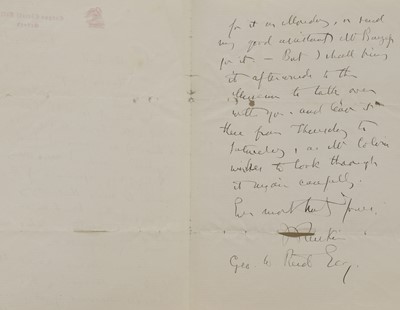 for it on Monday, or send
my good assistant Mr
for it – But I shall bring
it afterwards to the
Museum to talk over
with you, and leave it
there from Thursday to
Saturday, as Mr Colvin
wishes to look through
it again carefully.
Ever most yours
J Ruskin
Geo. W Reid Esq.